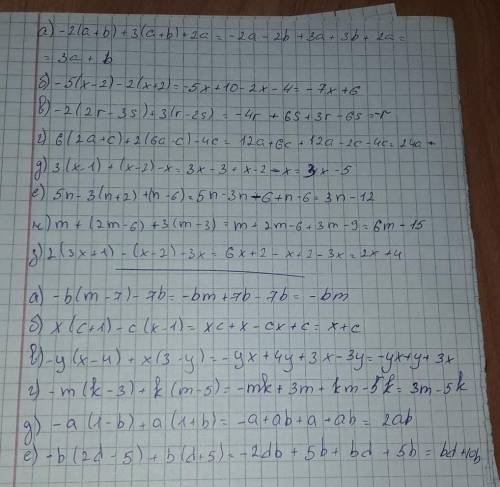 а) -2(a+b)+3(a+b)+2a=-2a-2b+3a+3b+2a=
=3a+b
б) -5(x-2)-2(x+2)=-5x+10-2x-4=-7x+6
в) -2(2r-3s)+3(r-2s)=-4r+6s+3r-6s=-r
г) 6(2a+c)+2(6a-c)-4c=12a+6c+12a-2c-4c=24a
д) 3(x-1)+(x-2)-x=3x-3+x-2-x=3x-5
е) 5n-3(n+2)+(n-6)=5n-3n-6+n-6=3n-12
ж) m+(2m-6)+3(m-3)=m+2m-6+3m-9=6m-15
з) 2(3x+1)-(x-2)-3x=6x+2-x+2-3x=2x+4
а) -b(m-7)-7b=-bm+7b-7b=-bm
б) x(c+1)-c(x-1)=xc+x-cx+c=x+c
в) -y(x-4)+x(3-y)=-yx+4y+3x-3y=-yx+y+3x
г) -m(k-3)+k(m-5)=-mk+3m+km-5k=3m-5k
д) -a(1-b)+a(1+b)=-a+ab+a+ab=2ab
е) -b(2d-5)+b(d+5)=-2db+5b+bd+5b=bd+10b